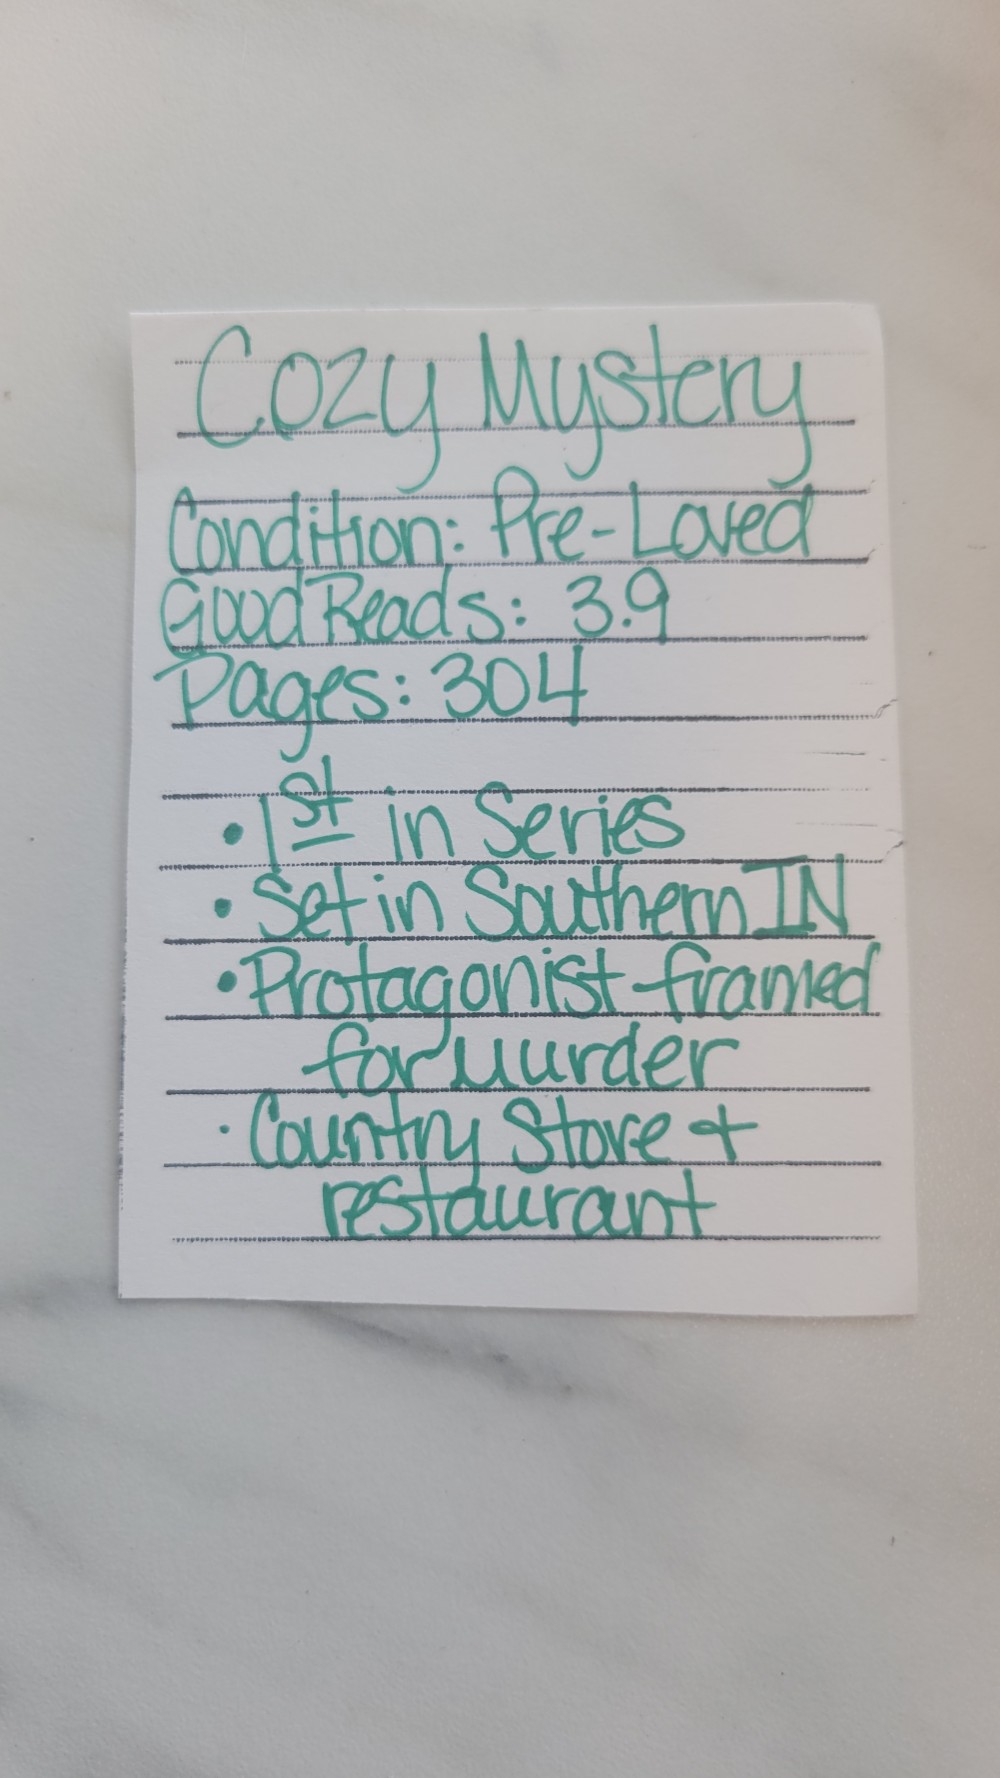 Cozy Mystery
Condition: Pre-Loved
GoodReads: 3.9
Pages: 304
• 1st in Series
• Set in Southern IN
• Protagonist framed
for Murder
• Country Store +
restaurant